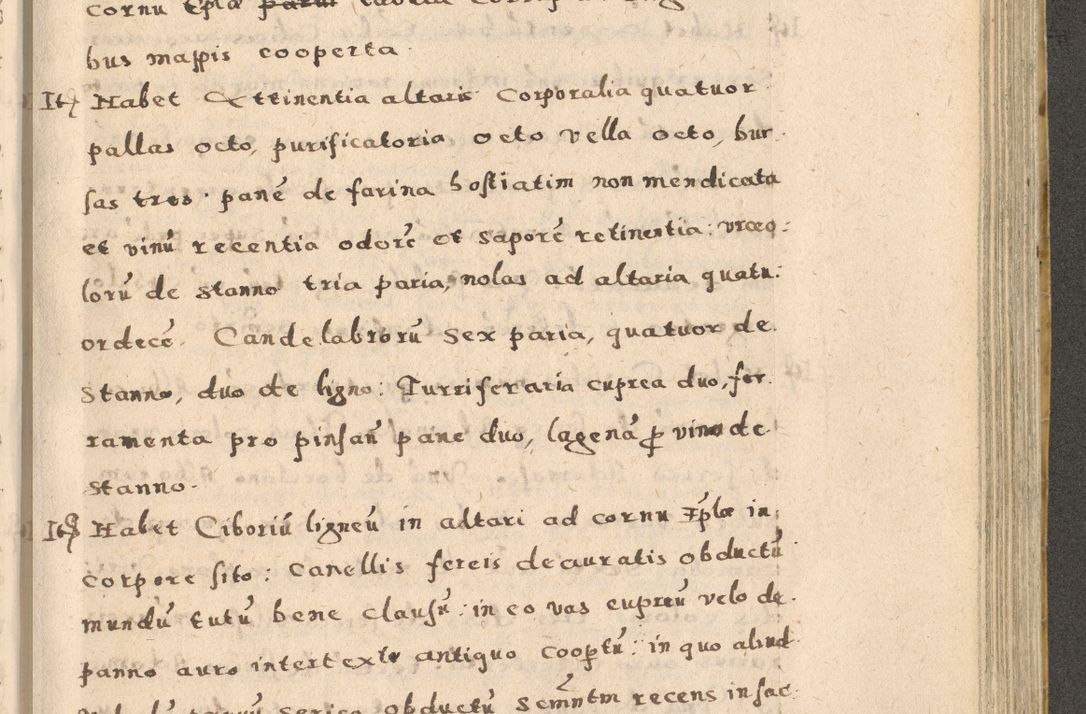 cornu Eplæ
bus mappis cooperta
Itē Habet Attinentia altaris Corporalia quatuor
pallas octo, purificatoria octo vella octo, bur
sas tres. panē de farina hostiatim non mendicata
et vinū recentia odorē et saporē retinentia: urceo
lorū de stanno tria paria, nolas ad altaria quatu
ordecē. Candelabrorū sex paria, quatuor de
stanno, duo de ligno: Turriferaria cuprea duo, fer
ramenta pro pinsan̄ pane duo, lagenā p vino de
stanno.
Itē Habet Ciboriū ligneū in altari ad cornu Eplæ in
corpore sito: Canellis fereis deauratis obductū
mundū tutū bene clausū: in eo vas cupreū velo de
panno auro intertexto antiquo cooptū: in quo aliud
serico obductū Scmn̄tm recens in sac